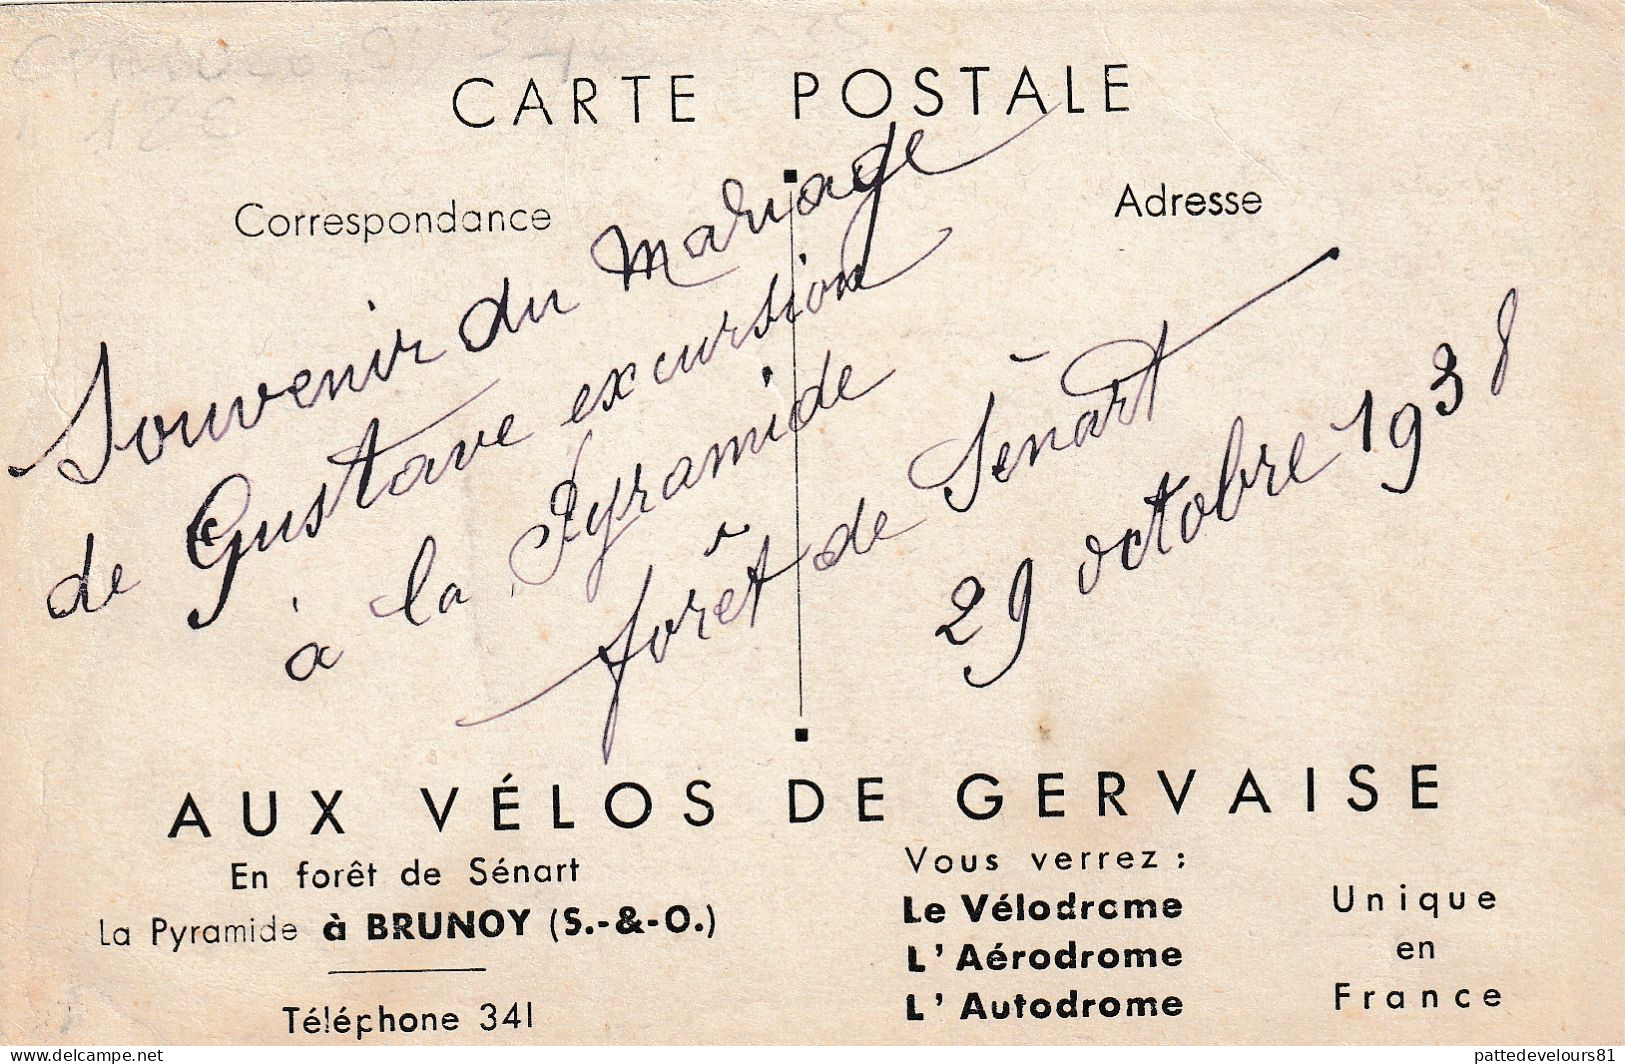 CARTE POSTALE
Correspondance
Adresse
Souvenir du Mariage
de Gustave excursion
à la Pyramide
forêt de Sénart
29 octobre 1938
AUX VÉLOS DE GERVAISE
En forêt de Sénart
La Pyramide à BRUNOY (S.-&-O.)
Téléphone 341
Vous verrez :
Le Vélodrome
L' Aérodrome
L' Autodrome
Unique
en
France
delcampe.net
pattedevelours81